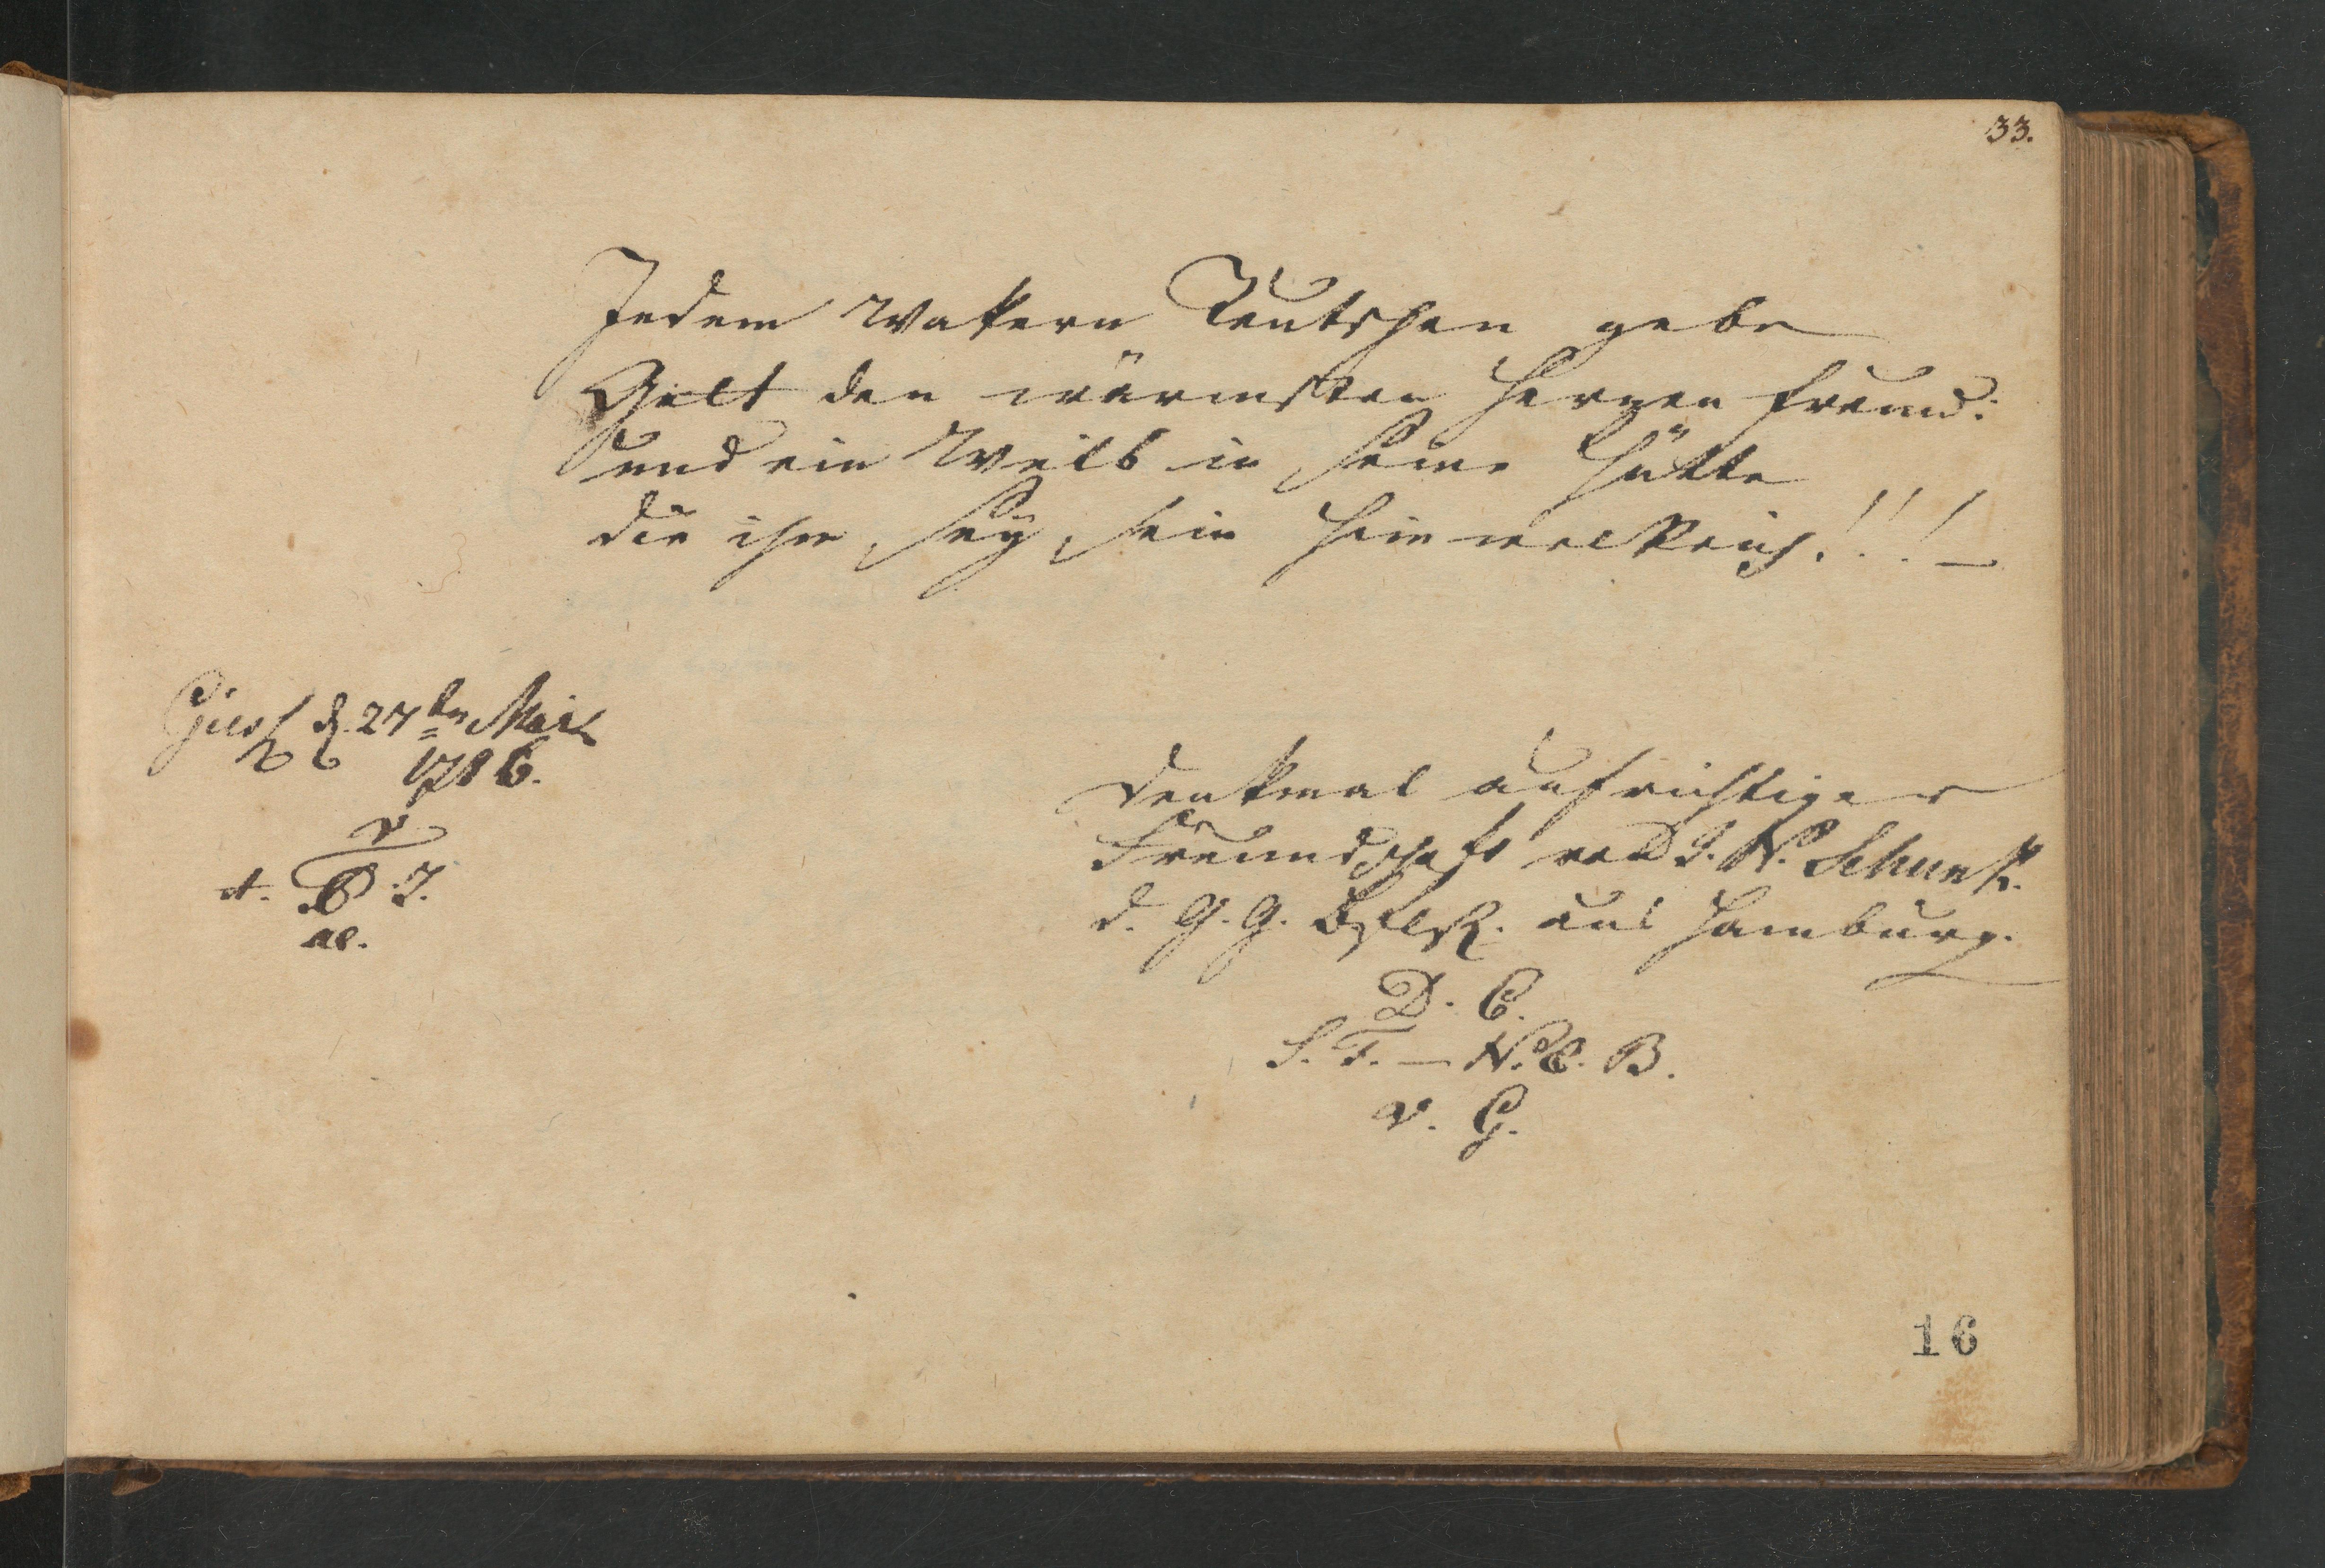 33.
Jedem wakern Teutschen gebe
Gott den wärmsten Herzen freund:
und ein Weib in seine Hütte
die ihm sey sein Himmelreich!!!
d. 27ten Mai
1786.
V
A. J.
Denkmal aufrichtiger
Freundschaft von J. N. Schunk.
d. G. G. aus Hamburg.
D. C.
S. F. — N. C. B.
v. G.
16